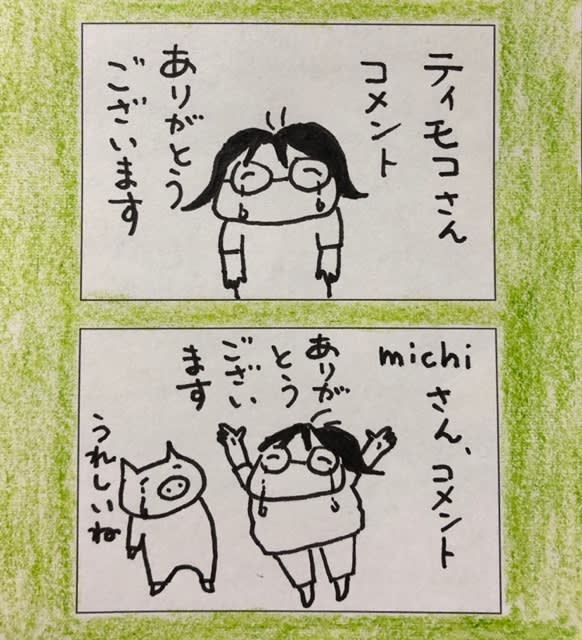 ティモコさん
コメント
ありがとう
ございます
michiさん、コメント
ありが
とう
ござい
ます
うれしいね